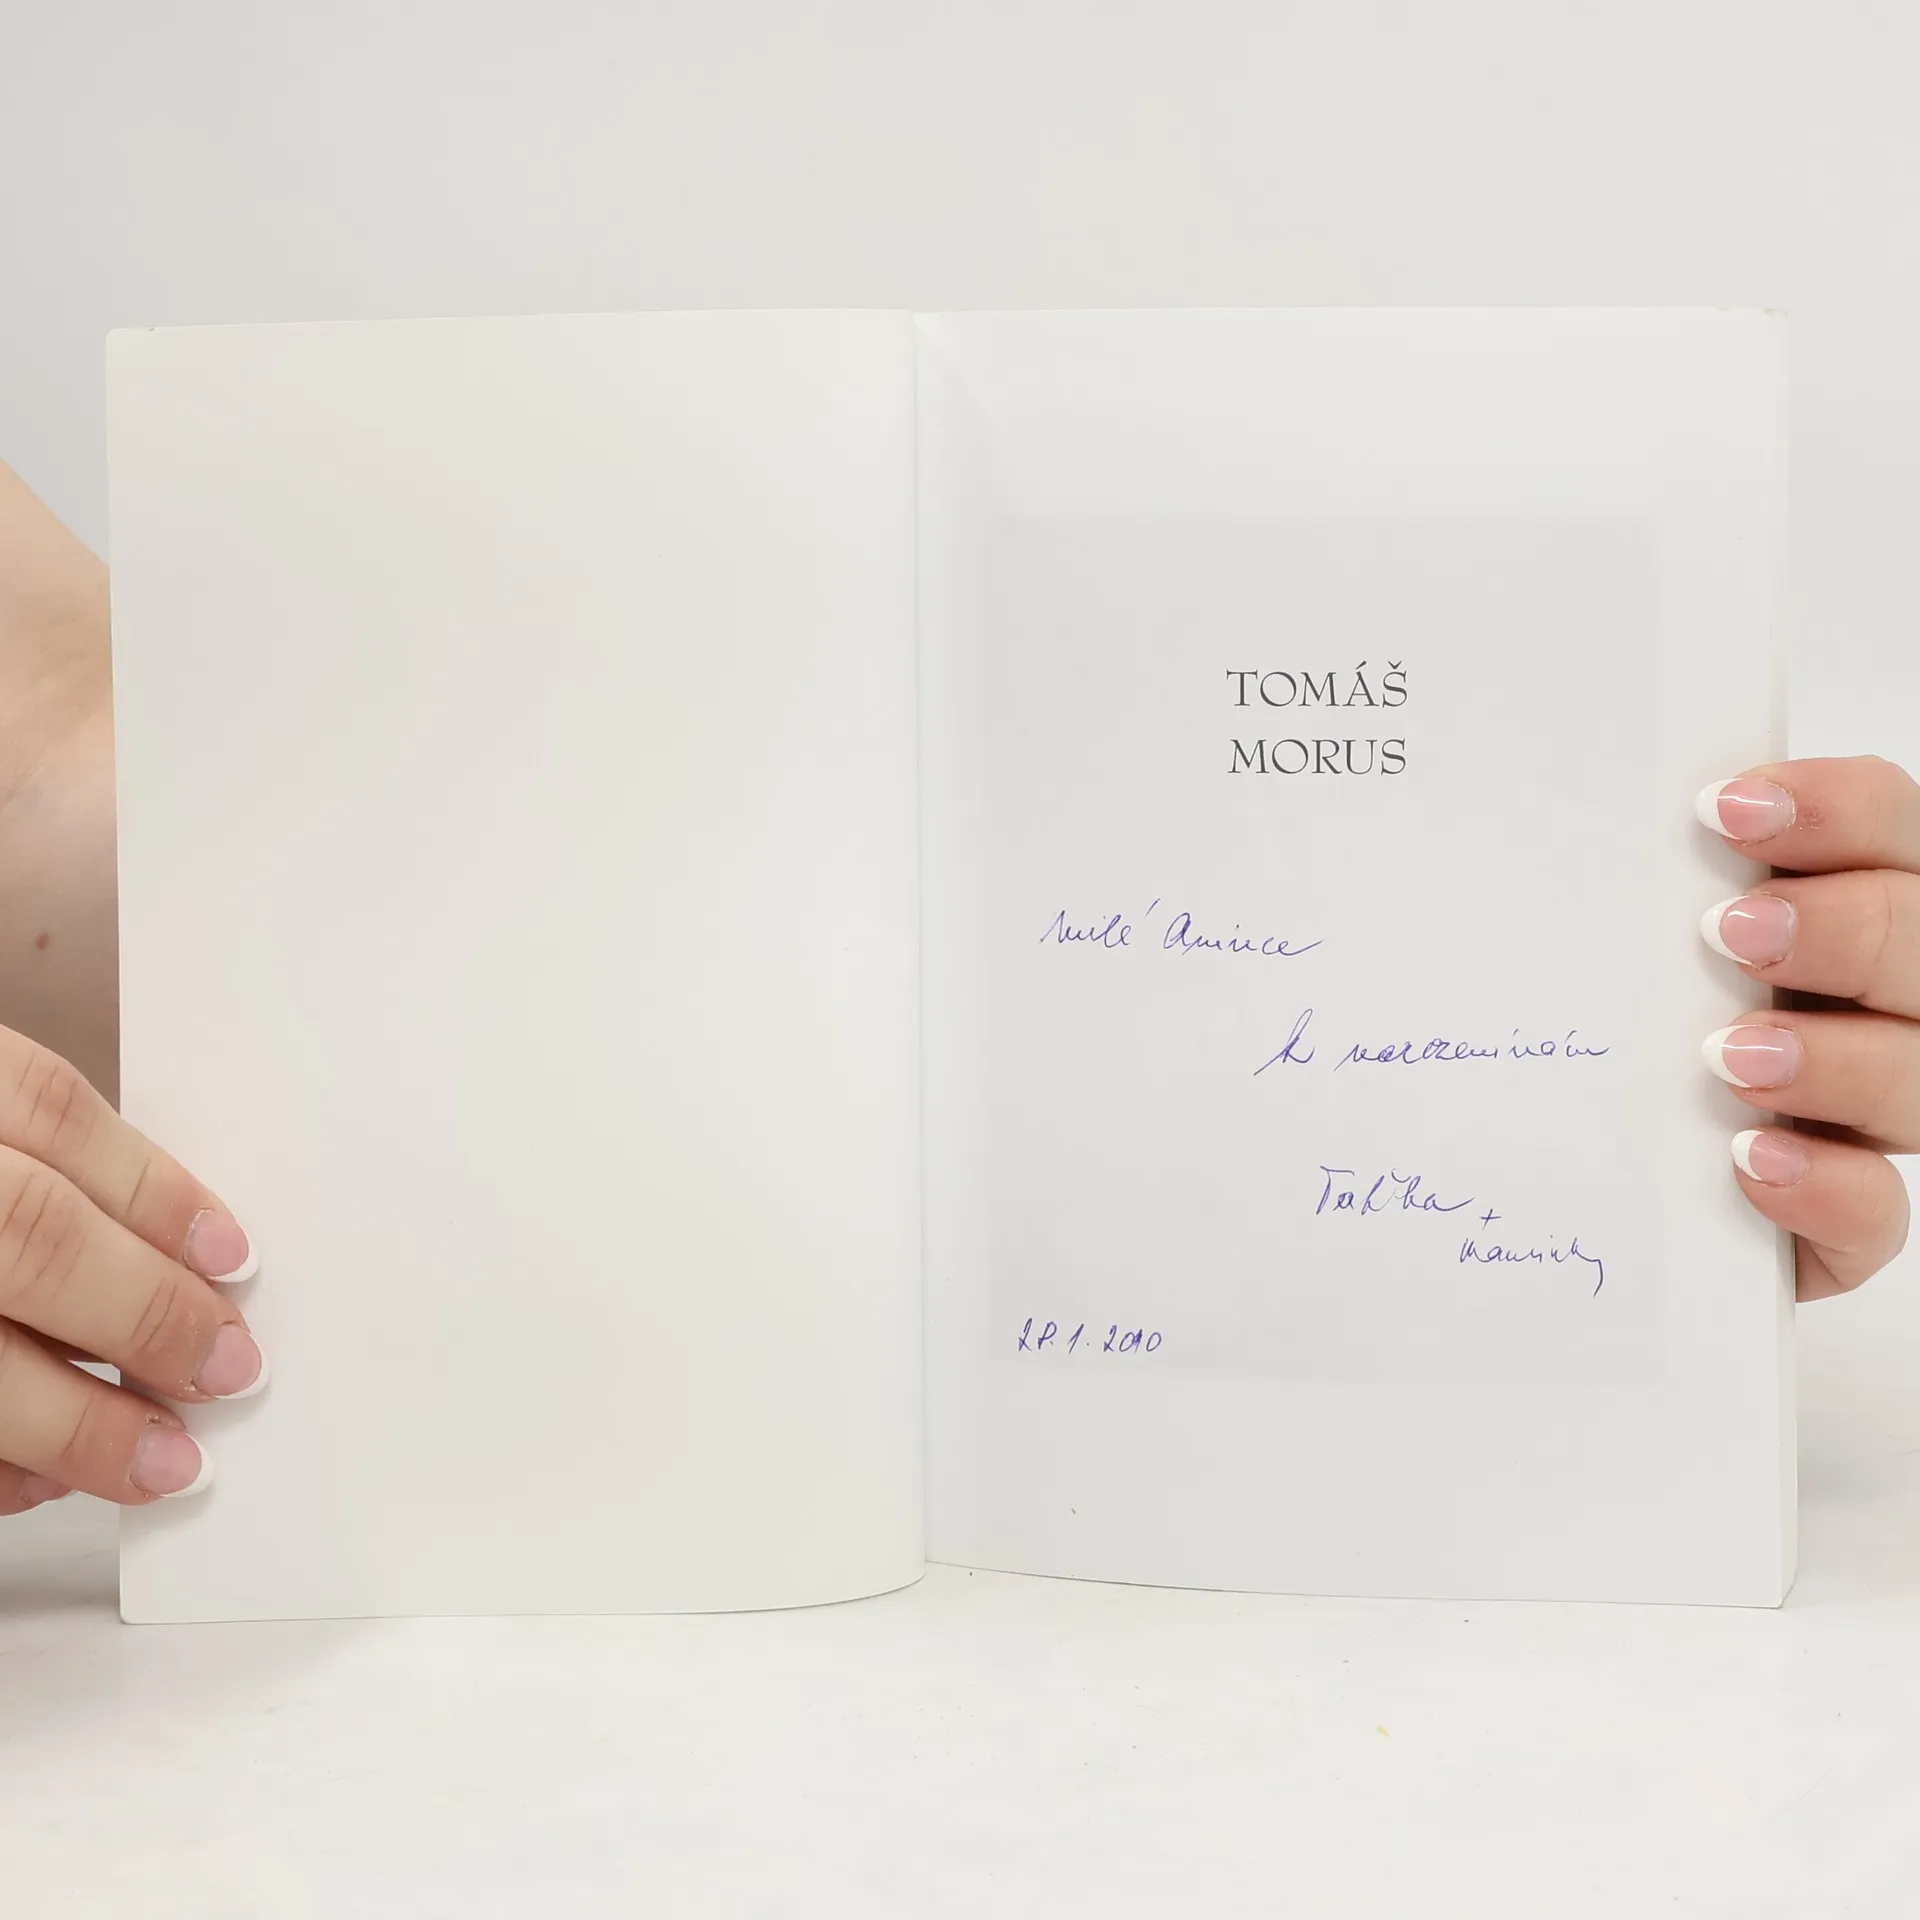 TOMÁŠ
MORUS
Milé Anince
k narozeninám
Taťka +
Maminka
28.1.2010